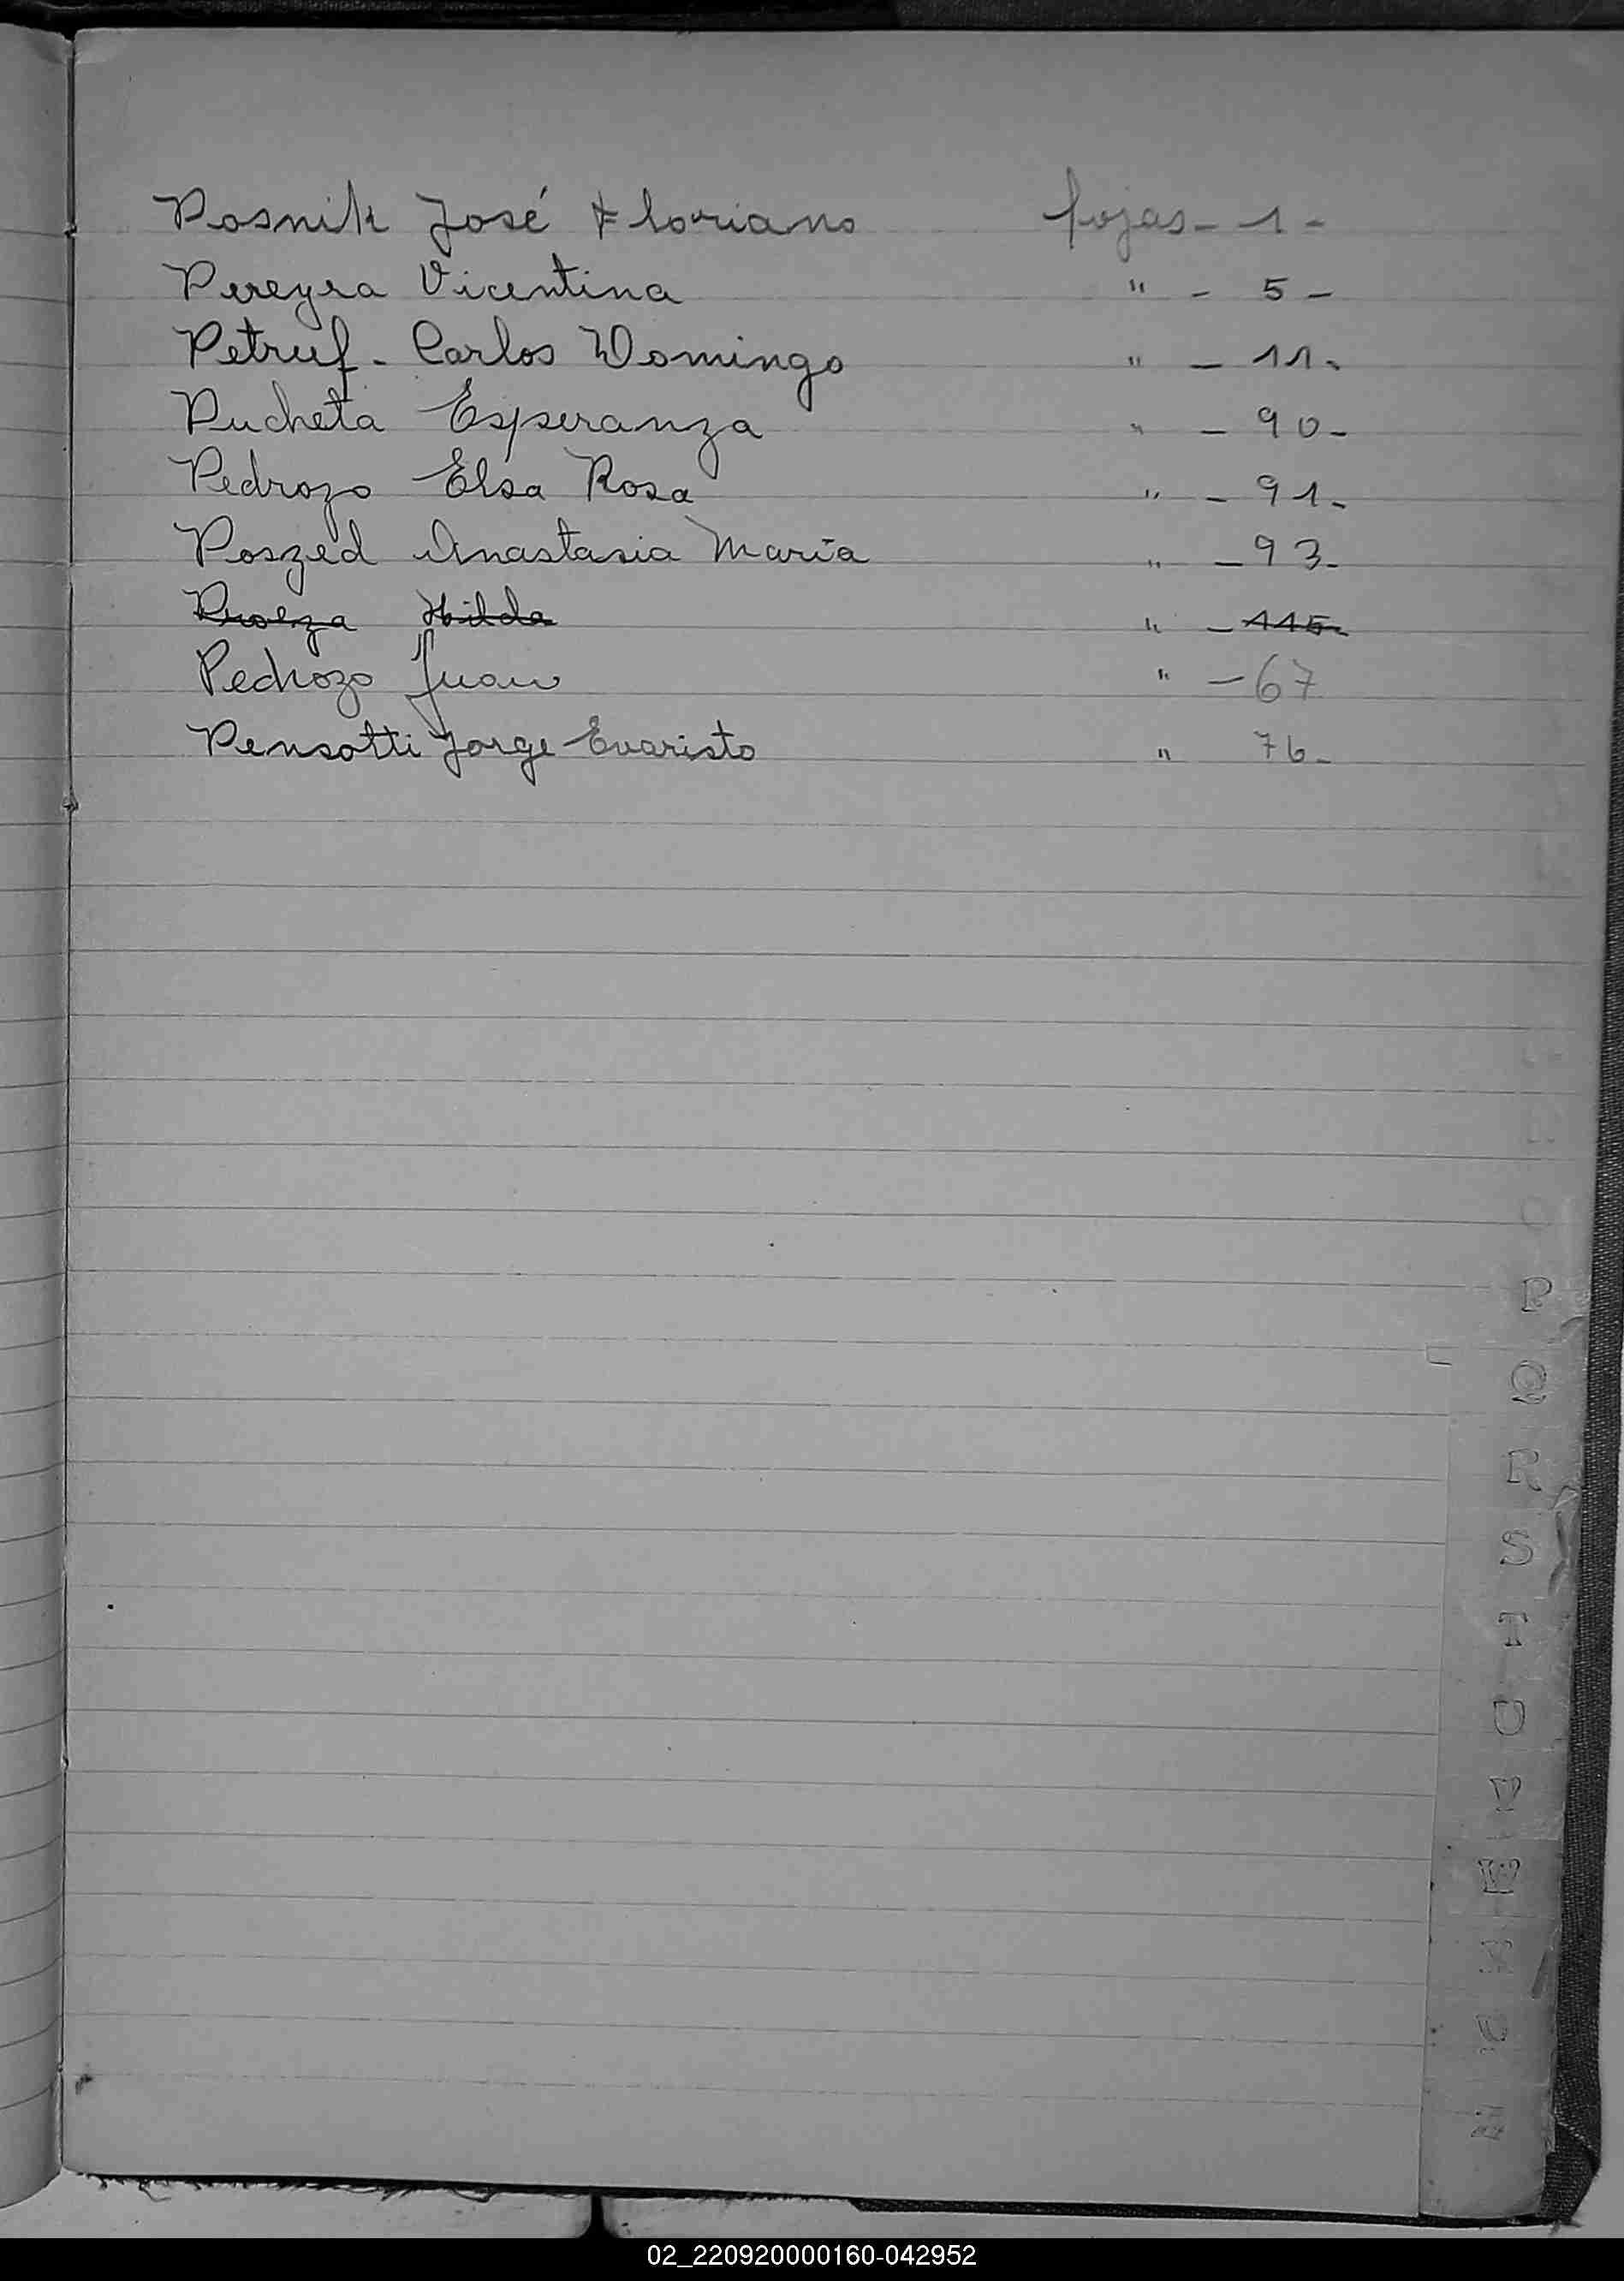 Posnik José Floriano fojas - 1 -
Pereyra Vicentina " - 5 -
Petruf - Carlos Domingo " - 11 -
Pucheta Esperanza " - 90 -
Pedrozo Elsa Rosa " - 91 -
Poszed Anastasia María " - 93 -
Hilda " - 115 -
Pedrozo Juan " - 67
Pensotti Jorge Evaristo " 76 -
P
Q
R
S
T
02_220920000160-042952